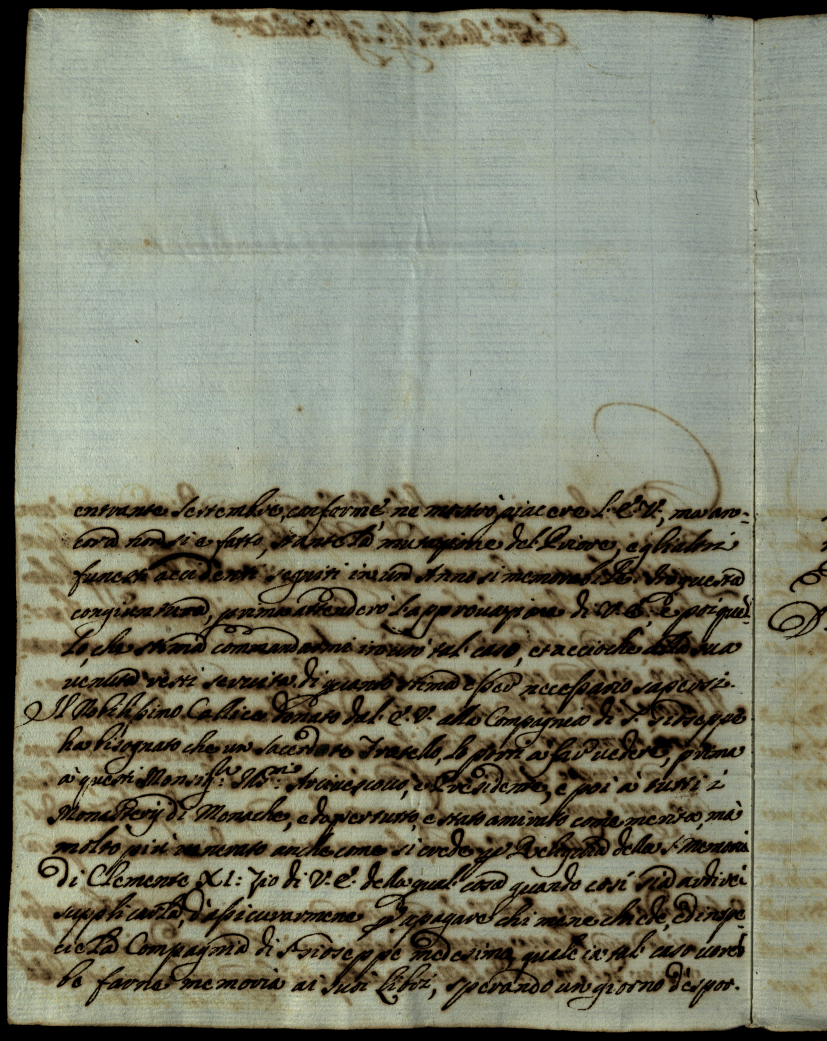 entrante Settembre, conforme, ne mostrò piacere l'E. V., ma an-
cora non si è fatto, stante la mutazione del Priore, e gli altri
funesti accidenti seguiti in un Anno si memorabile. In questa
congiuntura, prima attenderò l'approvazione di V. E., e poi quel-
lo, che stima commandarmi in tal caso, et acciochè della sua
venuta resti servita di quanto stima esser necessario sapersi.
Il Nobilissimo Calice donato dal E. V. alla Compagnia di S. Gioseppe
ha bisognato che un Sacerdote Fratello, lo porti a far vedere, prima
à questi Monsig.ri Ill.mi Arcivescovo, e Presidente, e poi à tutti i
Monasterij di Monache, e da per tutto, e stato amirato come merita, mà
molto più venerato anche come si crede per Reliquia della S. Memoria
di Clemente XI: Zio di V. E. della qual cosa quando così sia ardirei
supplicarla, d'assicurarmene per apagare chi mene chiede, ed in spe-
cie la Compagnia di S. Gioseppe medesima, quale in tal caso voreb-
be farne memoria ai suoi Libri, sperando un giorno d'espor-